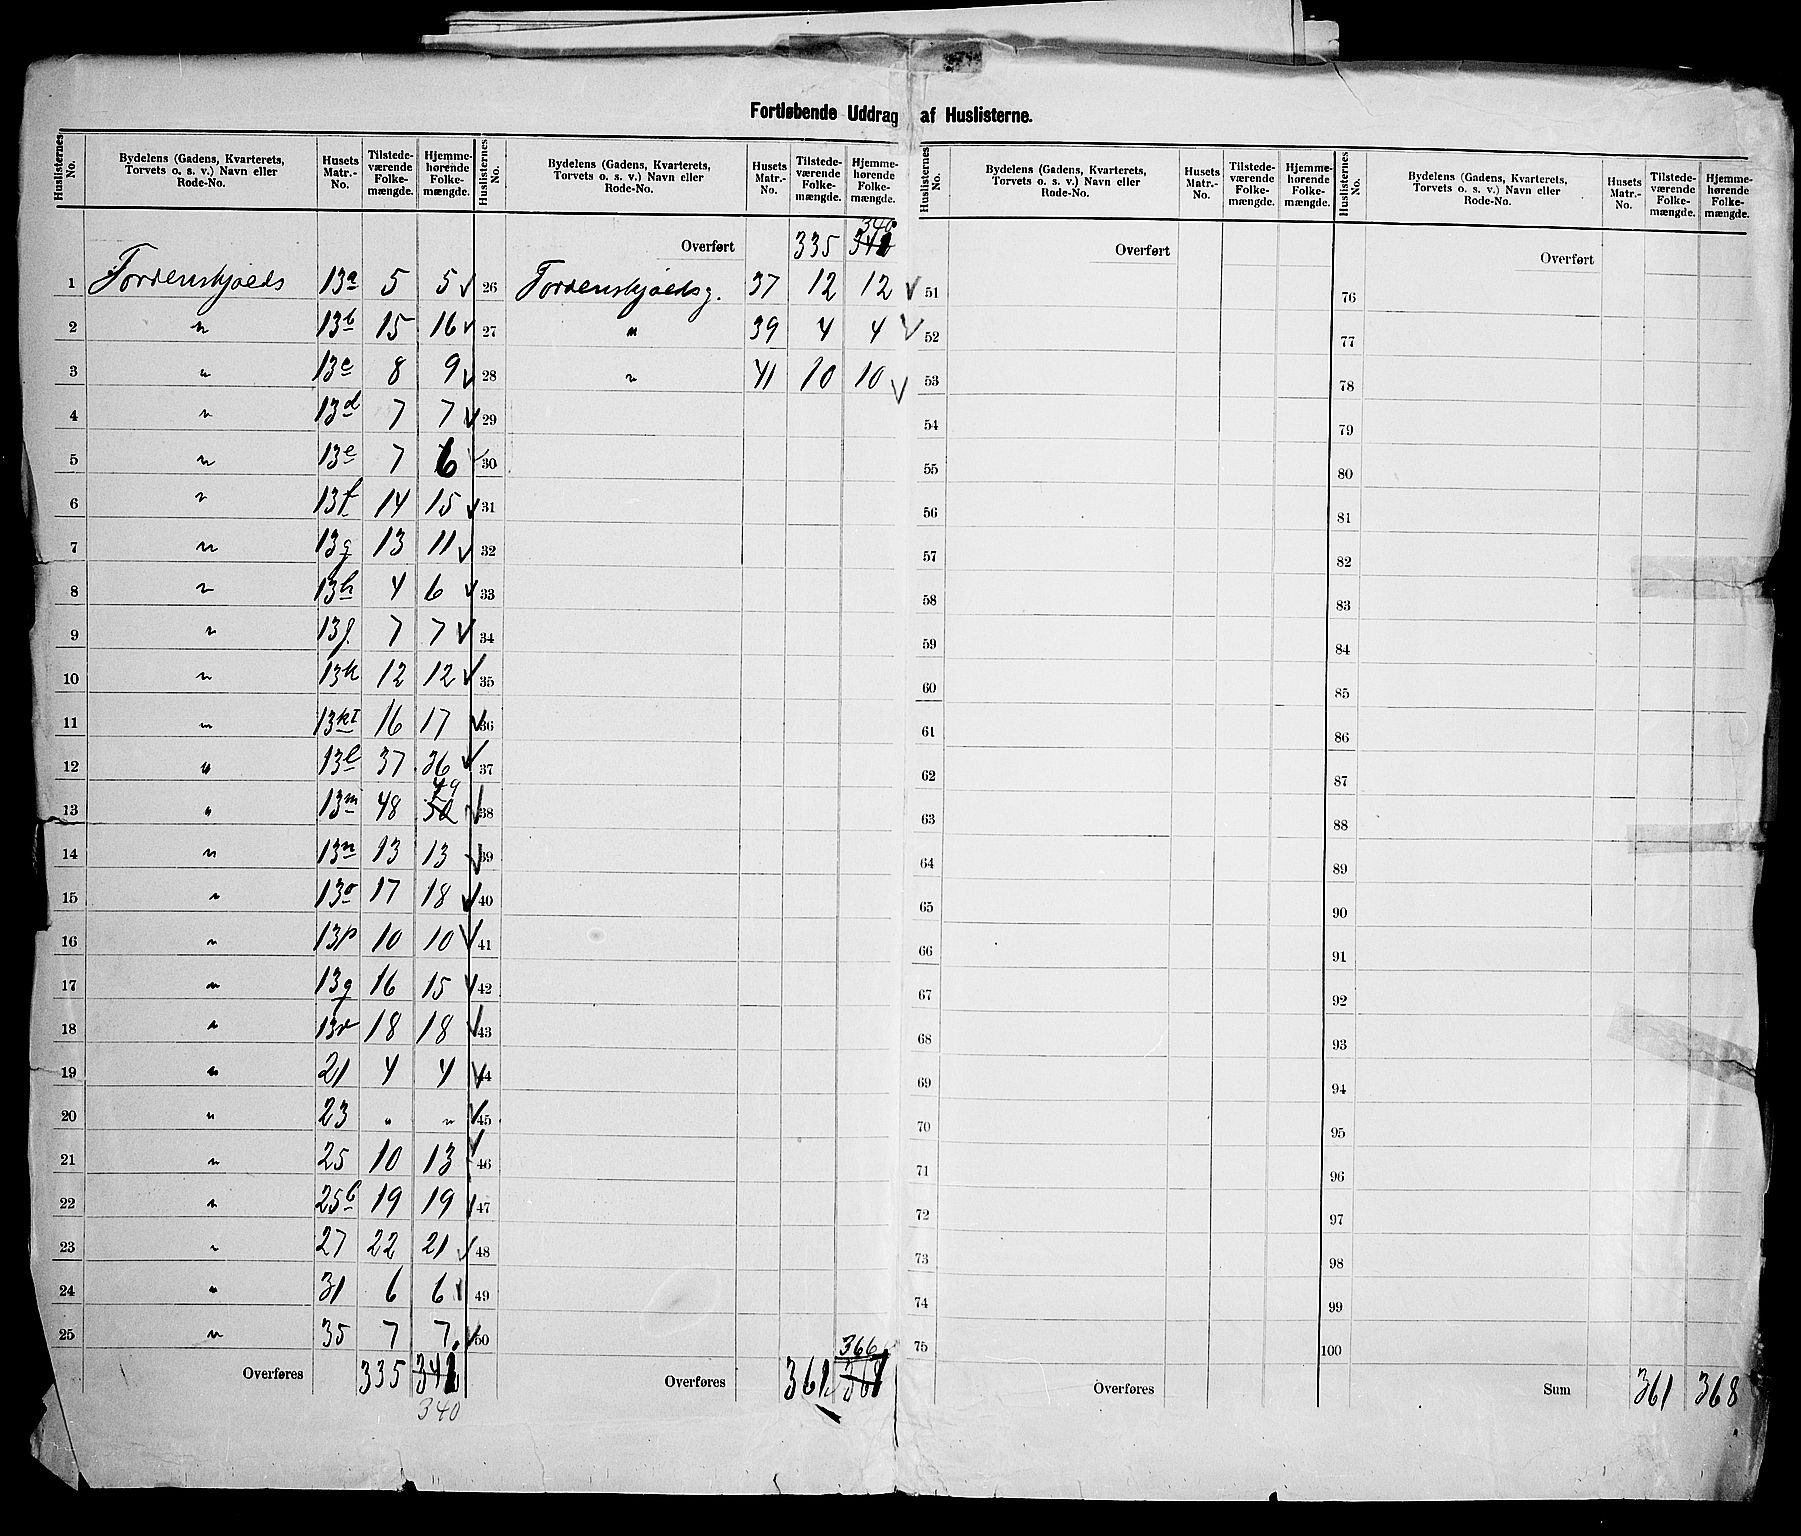 Fortløbende Uddrag af Huslisterne.
Huslisternes No. | Bydelens (Gadens, Kvarterets, Torvets o. s. v.) Navn eller Rode-No. | Husets Matr.-No. | Tilstedeværende Folkemængde. | Hjemmehørende Folkemængde.
1 Tordenskjolds 13a 5 5 ✓
2 " 13b 15 16 ✓
3 " 13c 8 9 ✓
4 " 13d 7 7 ✓
5 " 13e 7 6 ✓
6 " 13f 14 15 ✓
7 " 13g 13 11 ✓
8 " 13h 4 6 ✓
9 " 13j 7 7 ✓
10 " 13k 12 12 ✓
11 " 13kI 16 17 ✓
12 " 13l 37 36 ✓
13 " 13m 48 50 49 ✓
14 " 13n 13 13 ✓
15 " 13o 17 18 ✓
16 " 13p 10 10 ✓
17 " 13q 16 15 ✓
18 " 13r 18 18 ✓
19 " 21 4 4 ✓
20 " 23 " " ✓
21 " 25 10 13 ✓
22 " 25b 19 19 ✓
23 " 27 22 21 ✓
24 " 31 6 6 ✓
25 " 35 7 7 ✓
Overføres 335 341
340
Huslisternes No. | Bydelens (Gadens, Kvarterets, Torvets o. s. v.) Navn eller Rode-No. | Husets Matr.-No. | Tilstedeværende Folkemængde. | Hjemmehørende Folkemængde.
340
Overført 335 341
26 Tordenskjoldsg. 37 12 12 ✓
27 " 39 4 4 ✓
28 " 41 10 10 ✓
29
30
31
32
33
34
35
36
37
38
39
40
41
42
43
44
45
46
47
48
49
50
366
Overføres 361 367
Huslisternes No. | Bydelens (Gadens, Kvarterets, Torvets o. s. v.) Navn eller Rode-No. | Husets Matr.-No. | Tilstedeværende Folkemængde. | Hjemmehørende Folkemængde.
Overført
51
52
53
54
55
56
57
58
59
60
61
62
63
64
65
66
67
68
69
70
71
72
73
74
75
Overføres
Huslisternes No. | Bydelens (Gadens, Kvarterets, Torvets o. s. v.) Navn eller Rode-No. | Husets Matr.-No. | Tilstedeværende Folkemængde. | Hjemmehørende Folkemængde.
Overført
76
77
78
79
80
81
82
83
84
85
86
87
88
89
90
91
92
93
94
95
96
97
98
99
100
Sum 361 368